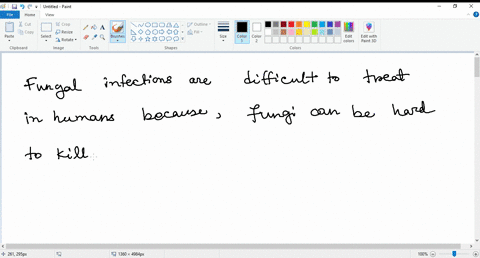 Untitled - Paint
File
Home
View
Paste
Cut
Copy
Select
Crop
Resize
Rotate
Brushes
Size
Color 1
Color 2
Edit colors
Edit with Paint 3D
Clipboard
Image
Tools
Shapes
Colors
Fungal infections are difficult to treat
in humans because, fungi can be hard
to kill.
261, 293px
1360 × 4984px
100%